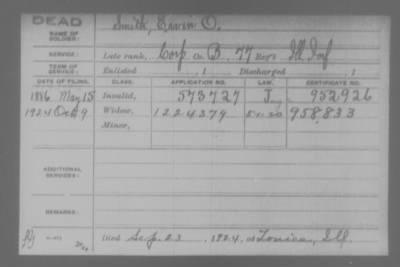 DEAD
NAME OF SOLDIER: Smith, Erwin O.
SERVICE: Late rank, Corp Co. B, 77 Reg't Ill. Inf.
TERM OF SERVICE: Enlisted , 1 Discharged , 1
DATE OF FILING. CLASS. APPLICATION NO. LAW. CERTIFICATE NO.
1886 May 15 Invalid, 573727 J 952926
1924 Oct 9 Widow, 1224379 958,833
Minor,
ADDITIONAL SERVICES:
REMARKS:
Died Sep. 23 1924, at Lonica, Ill.